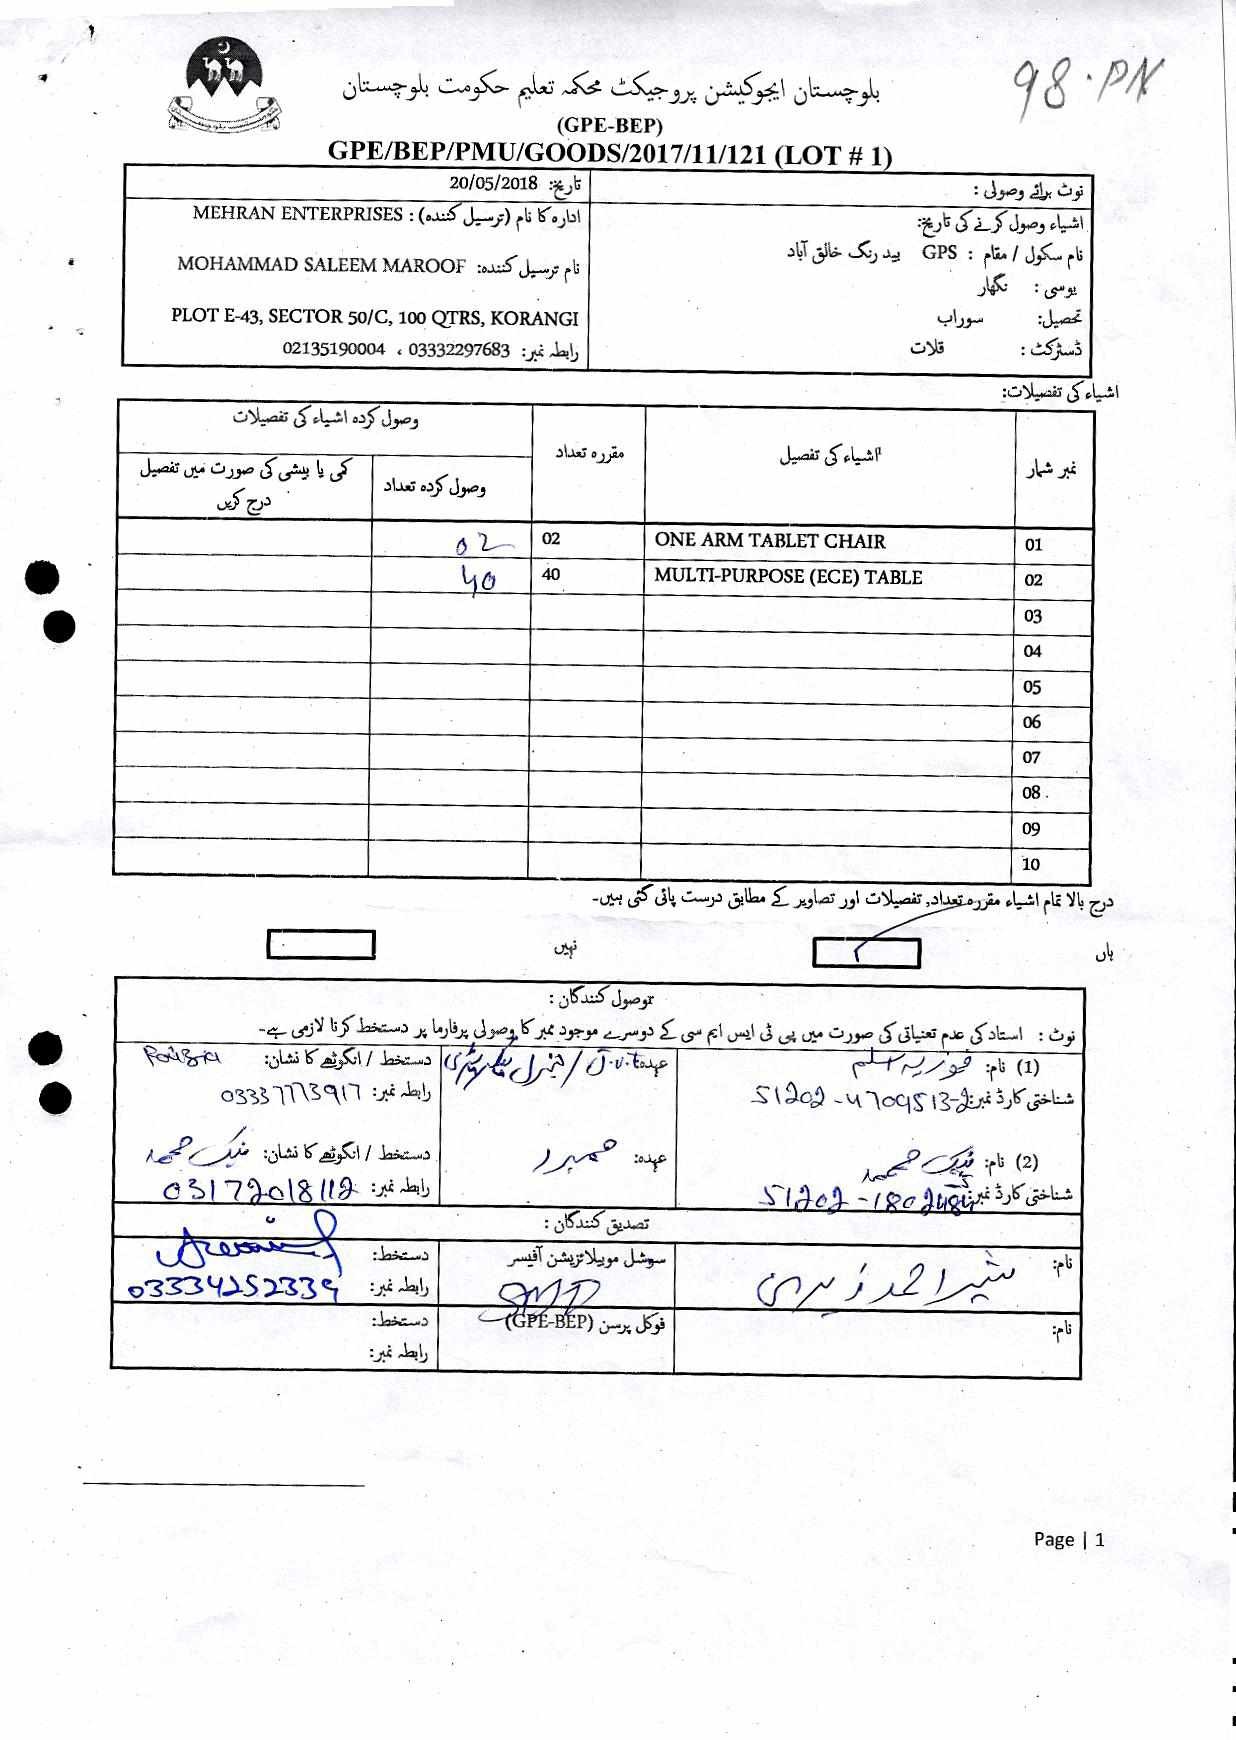 98.PN
بلوچستان ایجوکیشن پروجیکٹ محکمہ تعلیم حکومت بلوچستان
(GPE-BEP)
GPE/BEP/PMU/GOODS/2017/11/121 (LOT # 1)
نوٹ برائے وصولی :
تاریخ: 20/05/2018
اشیاء وصول کرنے کی تاریخ:
نام سکول / مقام : GPS بیدرنگ خالق آباد
یوسی : نگھار
تحصیل: سوراب
ڈسٹرکٹ : قلات
ادارہ کا نام (ترسیل کنندہ) : MEHRAN ENTERPRISES
نام ترسیل کنندہ: MOHAMMAD SALEEM MAROOF
PLOT E-43, SECTOR 50/C, 100 QTRS, KORANGI
رابطہ نمبر: 03332297683 ، 02135190004
اشیاء کی تفصیلات:
نمبر شمار اشیاء کی تفصیل مقررہ تعداد وصول کردہ اشیاء کی تفصیلات
وصول کردہ تعداد کمی یا بیشی کی صورت میں تفصیل درج کریں
01 ONE ARM TABLET CHAIR 02 02
02 MULTI-PURPOSE (ECE) TABLE 40 40
03
04
05
06
07
08
09
10
درج بالا تمام اشیاء مقررہ تعداد, تفصیلات اور تصاویر کے مطابق درست پائی گئی ہیں۔
ہاں نہیں
توصول کنندگان :
نوٹ : استاد کی عدم تعنیاتی کی صورت میں پی ٹی ایس ایم سی کے دوسرے موجود ممبر کا وصولی پرفارما پر دستخط کرنا لازمی ہے۔
(1) نام: فوزیہ اسلم عہدہ: J.v.t / جنرل سیکریٹری دستخط / انگوٹھے کا نشان:
شناختی کارڈ نمبر: 51202-4709513-2 رابطہ نمبر: 03337773917
(2) نام: نیک محمد عہدہ: ممبر دستخط / انگوٹھے کا نشان: نیک محمد
شناختی کارڈ نمبر: رابطہ نمبر: 03172018112
تصدیق کنندگان :
نام: سوشل موبیلائزیشن آفیسر دستخط:
رابطہ نمبر: 03334252339
نام: فوکل پرسن (GPE-BEP) دستخط:
رابطہ نمبر:
Page | 1